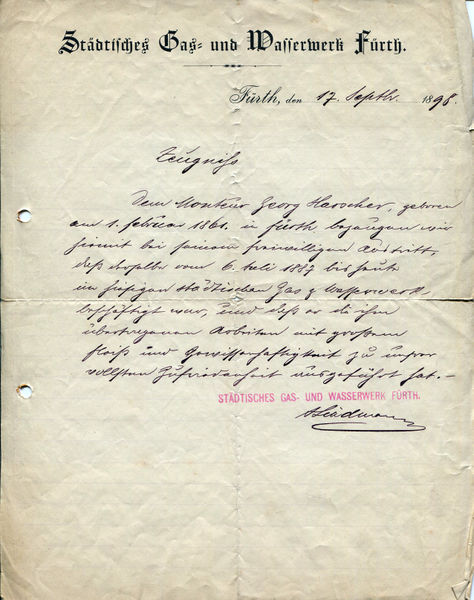 Städtisches Gas- und Wasserwerk Fürth.
Fürth, den 17. Septbr. 1898.
Zeugniss
Dem Monteur Georg Harscher, geboren
am 1. Februar 1861. in Fürth bezeugen wir
hiermit bei seinem freiwilligen Austritt,
daß derselbe vom 6. Juli 1887 bis heute
im hiesigen städtischen Gas & Wasserwerk
beschäftigt war, und daß er die ihm
übertragenen Arbeiten mit großem
Fleiß und Gewissenhaftigkeit zu unsrer
vollsten Zufriedenheit ausgeführt hat.–
STÄDTISCHES GAS- UND WASSERWERK FÜRTH.